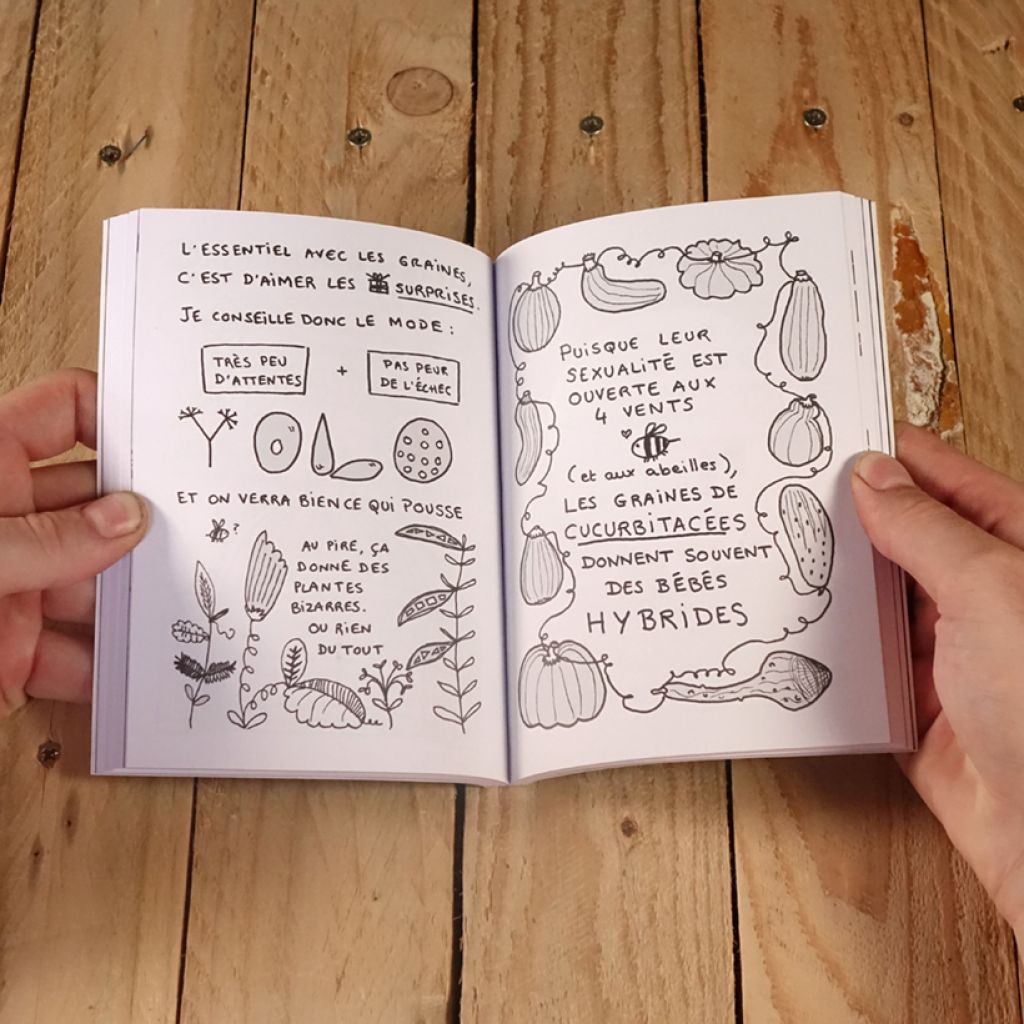 L'ESSENTIEL AVEC LES GRAINES,
C'EST D'AIMER LES SURPRISES.
JE CONSEILLE DONC LE MODE :
TRÈS PEU
D'ATTENTES
+
PAS PEUR
DE L'ÉCHEC
ET ON VERRA BIEN CE QUI POUSSE
?
AU PIRE, ÇA
DONNE DES
PLANTES
BIZARRES.
OU RIEN
DU TOUT
PUISQUE LEUR
SEXUALITÉ EST
OUVERTE AUX
4 VENTS
(et aux abeilles),
LES GRAINES DE
CUCURBITACÉES
DONNENT SOUVENT
DES BÉBÉS
HYBRIDES